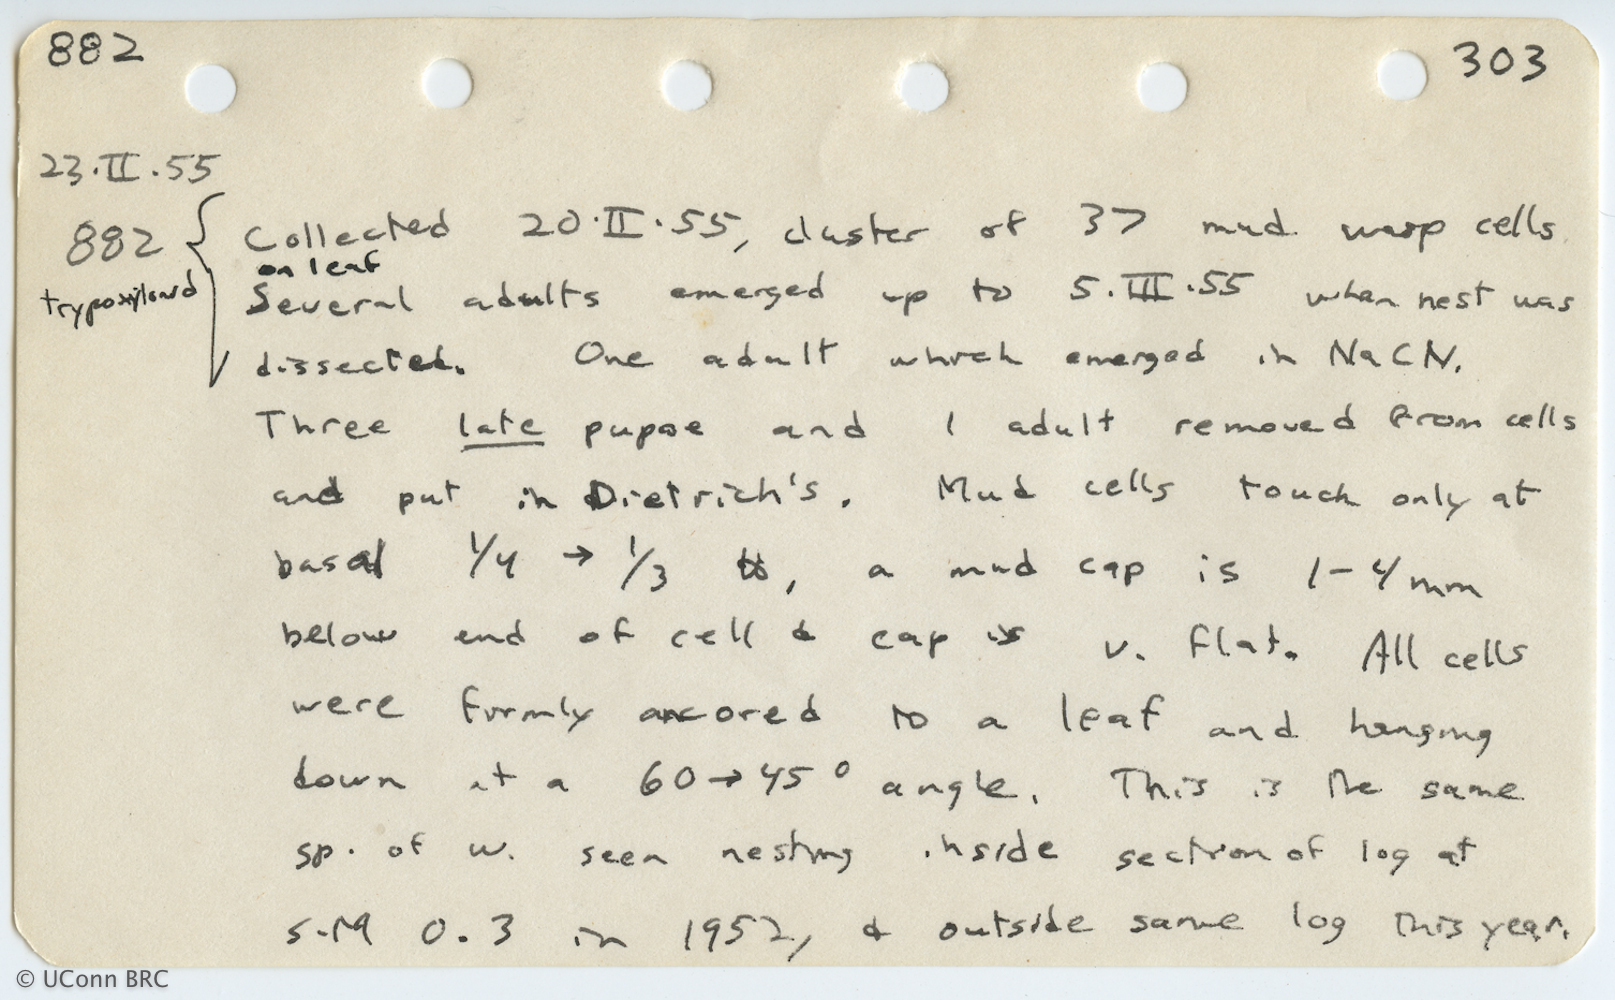 882 303
23.II.55
882 { Collected 20.II.55, cluster of 37 mud wasp cells
on leaf
trypoxylonid Several adults emerged up to 5.III.55 when nest was
dissected. One adult which emerged in NaCN.
Three late pupae and 1 adult removed from cells
and put in Dietrich's. Mud cells touch only at
basal 1/4 → 1/3, a mud cap is 1-4mm
below end of cell & cap is v. flat. All cells
were firmly ancored to a leaf and hanging
down at a 60→45° angle. This is the same
sp. of w. seen nesting inside section of log at
S-M 0.3 in 1952, & outside same log this year.
© UConn BRC